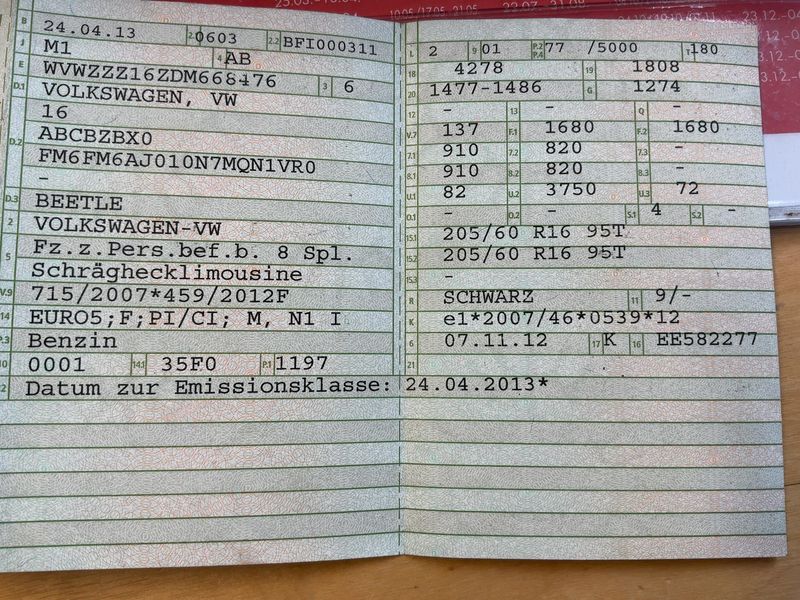 23.03.-04.04.
10.05./17.05.-21.05.
22.07.-31.08.
23.12.-04
23.12.-0
B 24.04.13 2.1 0603 2.2 BFI000311
J M1 4 AB
E WVWZZZ16ZDM668476 3 6
D.1 VOLKSWAGEN, VW
16
D.2 ABCBZBX0
FM6FM6AJ010N7MQN1VR0
-
D.3 BEETLE
2 VOLKSWAGEN-VW
5 Fz.z.Pers.bef.b. 8 Spl.
Schräghecklimousine
V.9 715/2007*459/2012F
14 EURO5;F;PI/CI; M, N1 I
P.3 Benzin
10 0001 14.1 35F0 P.1 1197
22 Datum zur Emissionsklasse: 24.04.2013*
L 2 9 01 P.2 P.4 77 /5000 T 180
18 4278 19 1808
20 1477-1486 G 1274
12 - 13 - Q -
V.7 137 F.1 1680 F.2 1680
7.1 910 7.2 820 7.3 -
8.1 910 8.2 820 8.3 -
U.1 82 U.2 3750 U.3 72
O.1 - O.2 - S.1 4 S.2 -
15.1 205/60 R16 95T
15.2 205/60 R16 95T
15.3 -
R SCHWARZ 11 9/-
K e1*2007/46*0539*12
6 07.11.12 17 K 16 EE582277
21